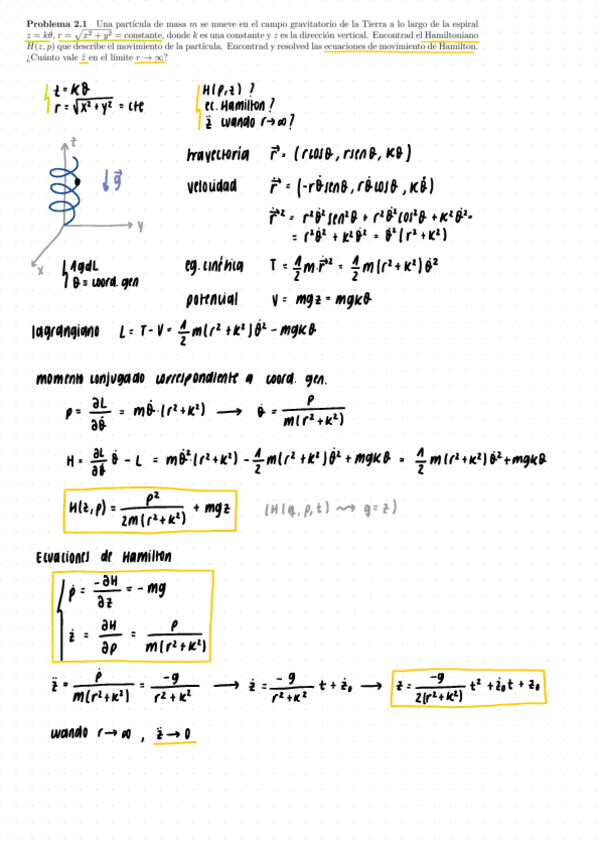 Problema 2.1 Una partícula de masa m se mueve en el campo gravitatorio de la Tierra a lo largo de la espiral
z = kθ, r = √(x² + y²) = constante, donde k es una constante y z es la dirección vertical. Encontrad el Hamiltoniano
H(z, p) que describe el movimiento de la partícula. Encontrad y resolved las ecuaciones de movimiento de Hamilton.
¿Cuánto vale z̈ en el límite r → ∞?
z = kθ
r = √(x² + y²) = cte
H(p,z) ?
ec. Hamilton ?
z̈ cuando r→∞ ?
z
y
x
↓g⃗
1gdL
θ = coord. gen
trayectoria r⃗ = (rcosθ, rsenθ, kθ)
velocidad r⃗̇ = (-rθ̇senθ, rθ̇cosθ, kθ̇)
r⃗̇² = r²θ̇²sen²θ + r²θ̇²cos²θ + k²θ̇² =
= r²θ̇² + k²θ̇² = θ̇²(r² + k²)
eg. cinética T = 1/2 m·r⃗̇² = 1/2 m(r² + k²)θ̇²
potencial V = mgz = mgkθ
lagrangiano L = T - V = 1/2 m(r² + k²)θ̇² - mgkθ
momento conjugado correspondiente a coord. gen.
p = ∂L/∂θ̇ = mθ̇·(r² + k²) → θ̇ = p/m(r² + k²)
H = ∂L/∂θ̇ θ̇ - L = mθ̇²(r² + k²) - 1/2 m(r² + k²)θ̇² + mgkθ = 1/2 m(r² + k²)θ̇² + mgkθ
H(z,p) = p²/2m(r² + k²) + mgz (H(q,p,t) ⇝ q = z)
Ecuaciones de Hamilton
ṗ = -∂H/∂z = - mg
ż = ∂H/∂p = p/m(r² + k²)
z̈ = ṗ/m(r² + k²) = -g/r² + k² → ż = -g/r² + k² t + ż₀ → z = -g/2(r² + k²) t² + ż₀t + z₀
cuando r→∞, z̈→0